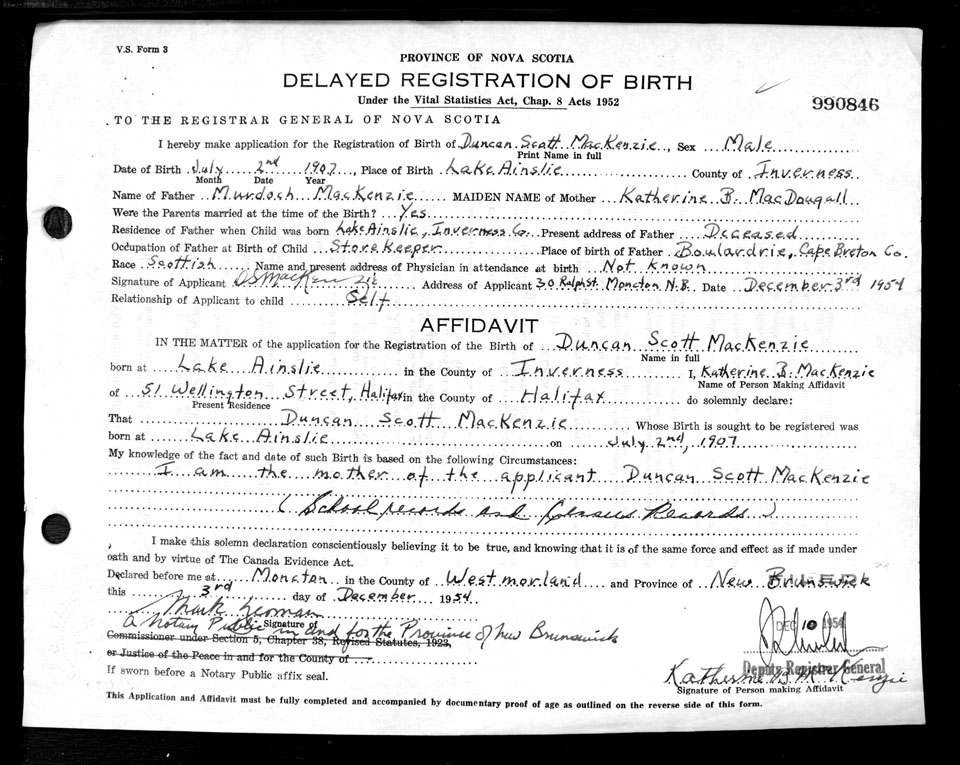 V.S. Form 3
PROVINCE OF NOVA SCOTIA
DELAYED REGISTRATION OF BIRTH
Under the Vital Statistics Act, Chap. 8 Acts 1952
990846
TO THE REGISTRAR GENERAL OF NOVA SCOTIA
I hereby make application for the Registration of Birth of Duncan Scott MacKenzie, Sex Male
Print Name in full
Date of Birth July 2nd 1907, Place of Birth Lake Ainslie County of Inverness
Month Date Year
Name of Father Murdoch MacKenzie MAIDEN NAME of Mother Katherine B. MacDougall
Were the Parents married at the time of the Birth? Yes
Residence of Father when Child was born Lake Ainslie, Inverness Co. Present address of Father Deceased
Occupation of Father at Birth of Child Store Keeper Place of birth of Father Boulardrie, Cape Breton Co.
Race Scottish Name and present address of Physician in attendance at birth Not Known
Signature of Applicant D S MacKenzie Address of Applicant 30 Ralph St. Moncton N.B. Date December 3rd 1954
Relationship of Applicant to child Self
AFFIDAVIT
IN THE MATTER of the application for the Registration of the Birth of Duncan Scott MacKenzie
Name in full
born at Lake Ainslie in the County of Inverness I, Katherine B. MacKenzie
Name of Person Making Affidavit
of 51 Wellington Street, Halifax in the County of Halifax do solemnly declare:
Present Residence
That Duncan Scott MacKenzie Whose Birth is sought to be registered was
born at Lake Ainslie on July 2nd, 1907
My knowledge of the fact and date of such Birth is based on the following Circumstances:
I am the mother of the applicant Duncan Scott MacKenzie
(School records and Census Records)
I make this solemn declaration conscientiously believing it to be true, and knowing that it is of the same force and effect as if made under
oath and by virtue of The Canada Evidence Act.
Declared before me at Moncton in the County of Westmorland and Province of New Brunswick
this 3rd day of December 1954
Mark Yeoman
Signature of
a Notary Public in and for the Province of New Brunswick
Commissioner under Section 5, Chapter 38, Revised Statutes, 1923,
or Justice of the Peace in and for the County of
DEC 10 1954
Deputy Registrar General
If sworn before a Notary Public affix seal.
Katherine B. McKenzie
Signature of Person making Affidavit
This Application and Affidavit must be fully completed and accompanied by documentary proof of age as outlined on the reverse side of this form.